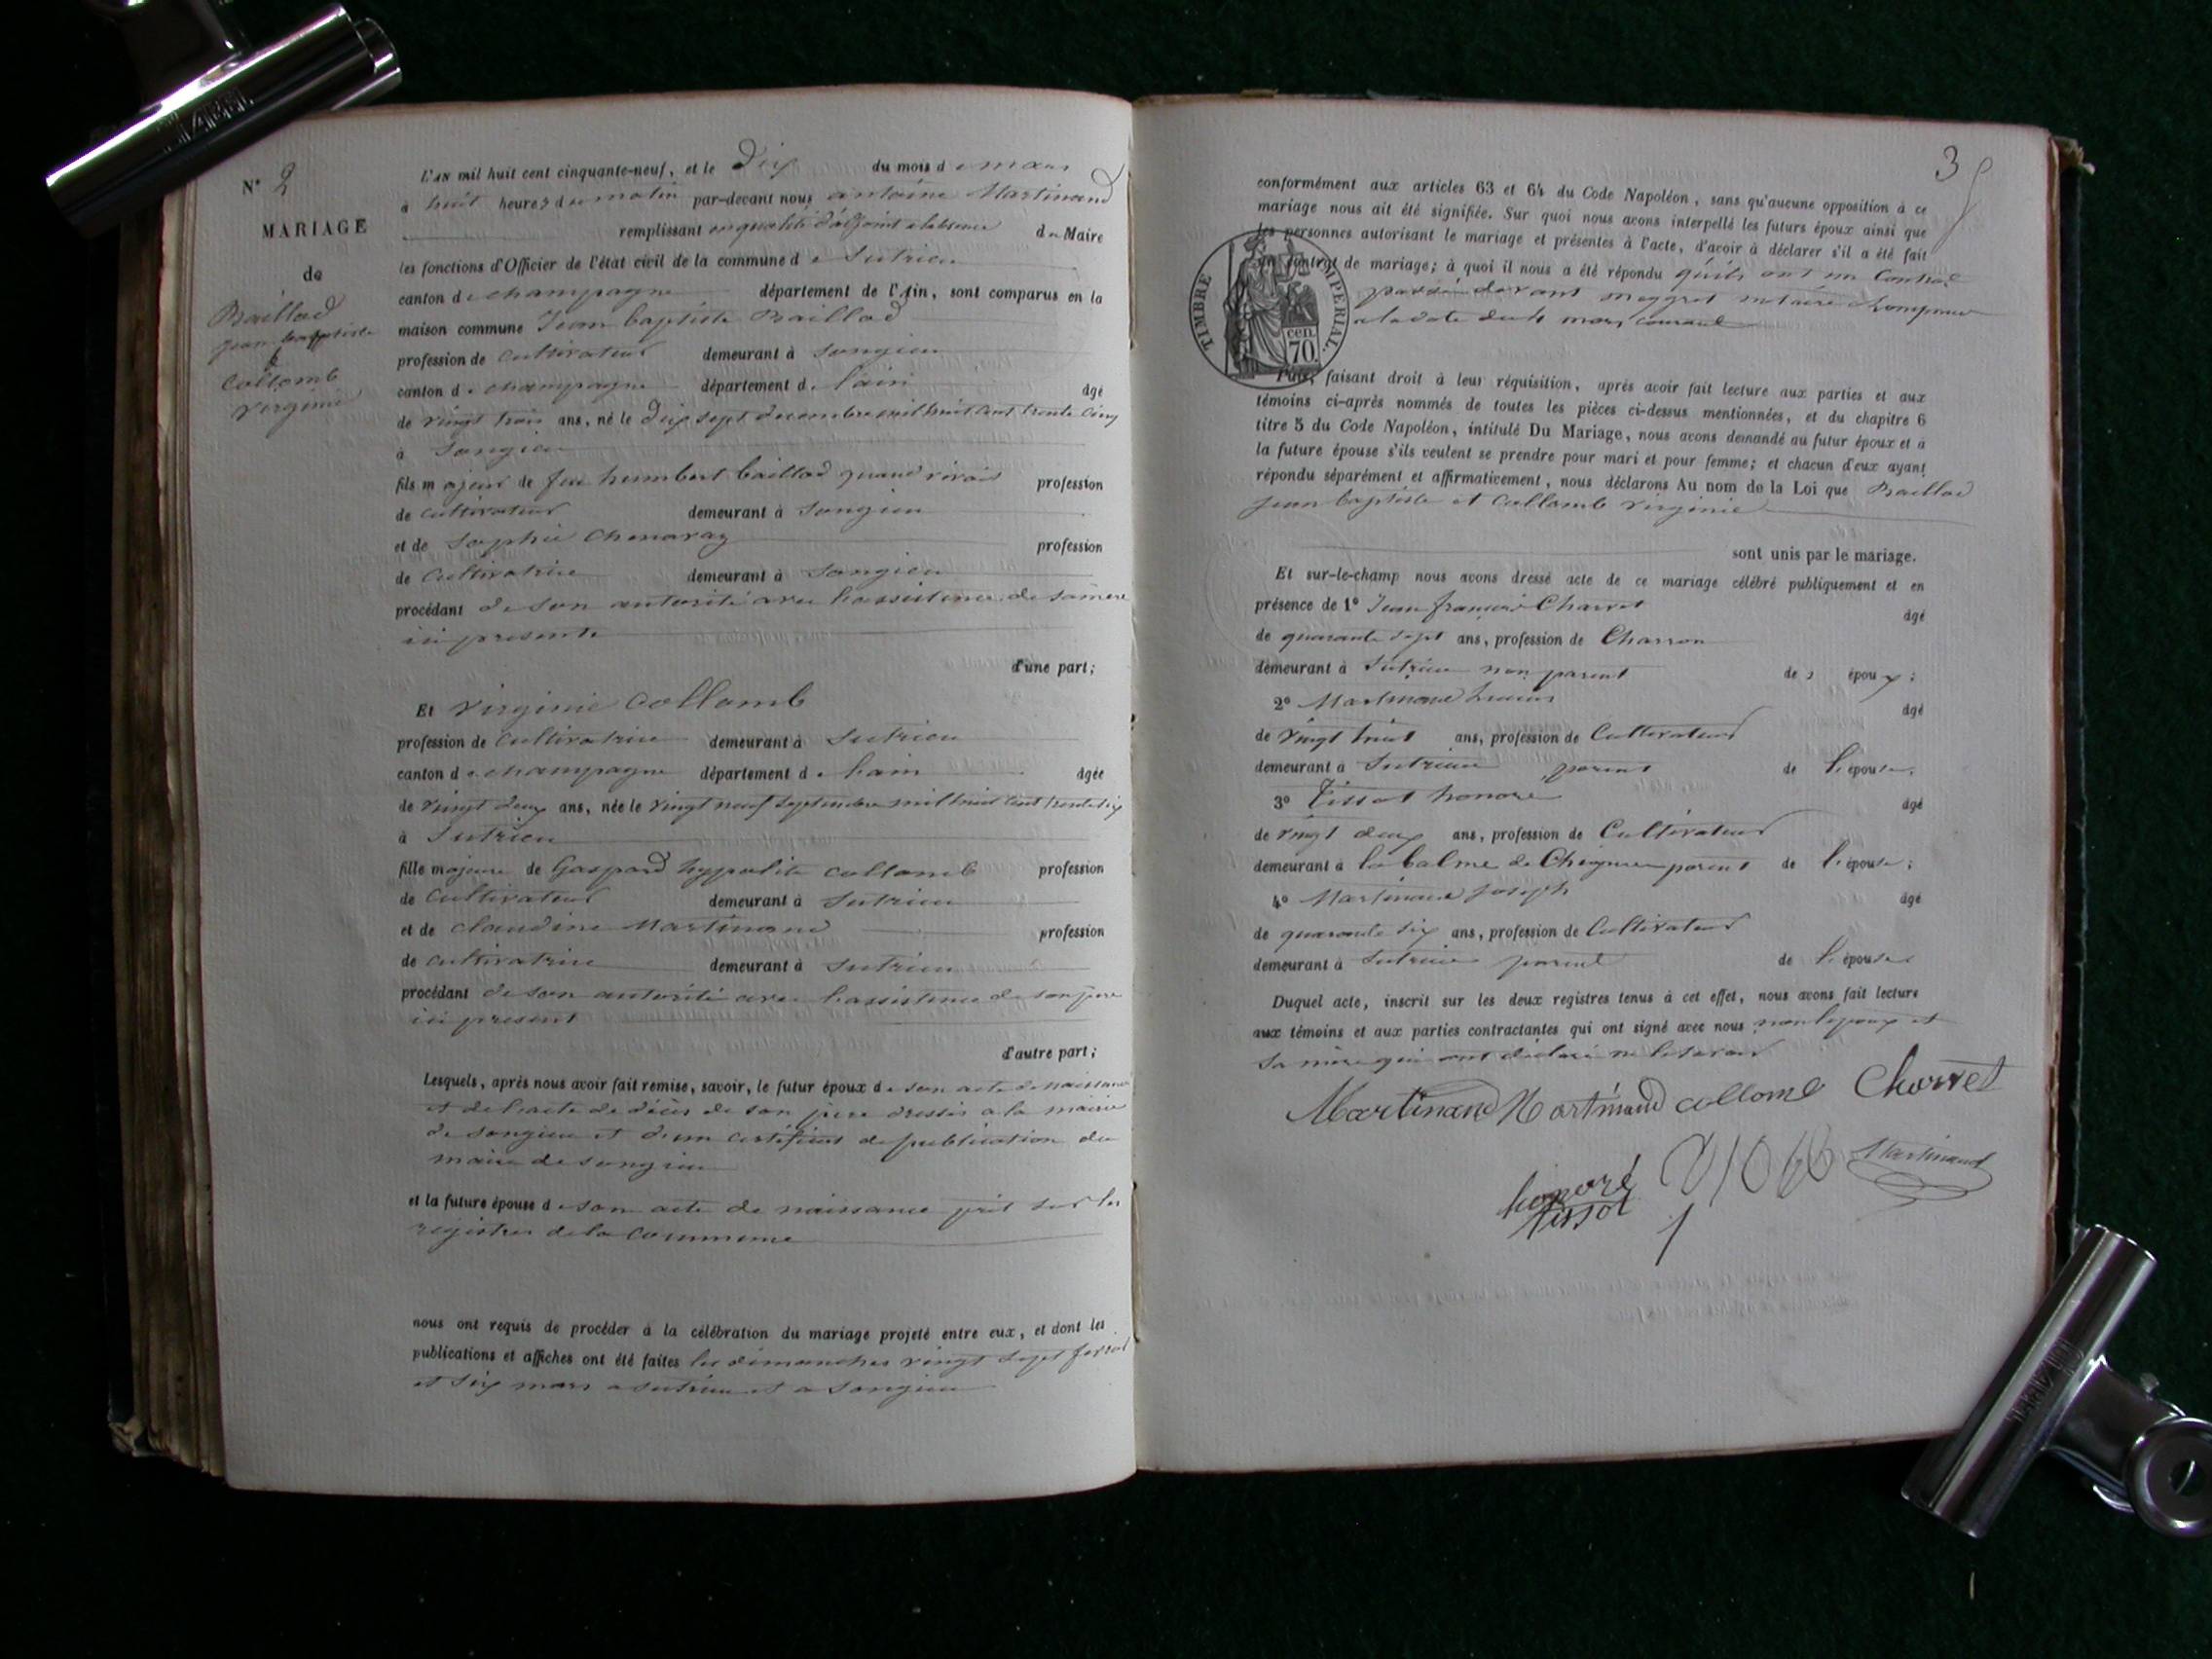 N° 2
MARIAGE
de
Baillod
jean baptiste
&
Collomb
virginie
L'AN mil huit cent cinquante-neuf, et le Dix du mois de mars
à huit heures du matin par-devant nous antoine Martinand
remplissant en qualité d'adjoint du Maire
les fonctions d'Officier de l'état civil de la commune de Sutrieu
canton de champagne département de l'Ain, sont comparus en la
maison commune Jean baptiste Baillod
profession de cultivateur demeurant à Songieu
canton de champagne département de l'ain âgé
de vingt trois ans, né le Dix sept decembre mil huit cent trente cinq
à Songieu
fils majeur de feu humbert baillod quand vivait profession
de cultivateur demeurant à Songieu
et de Sophie Chenavaz profession
de Cultivatrice demeurant à Songieu
procédant de son autorité avec l'assistence de sa mère
ici presente
d'une part;
Et virginie Collomb
profession de Cultivatrice demeurant à Sutrieu
canton de champagne département de lain âgée
de vingt deux ans, née le vingt neuf septembre mil huit cent trente six
à Sutrieu
fille majeure de Gaspard hyppolite collomb profession
de Cultivateur demeurant à Sutrieu
et de claudine Martinand profession
de cultivatrice demeurant à Sutrieu
procédant de son autorité avec l'assistence de son père
ici present
d'autre part;
Lesquels, après nous avoir fait remise, savoir, le futur époux de son acte de naissance
et de l'acte de décès de son père dressés a la mairie
de songieu et d'un certificat de publication du
maire de songieu
et la future épouse de son acte de naissance prit sur les
registres de la commune
nous ont requis de procéder à la célébration du mariage projeté entre eux, et dont les
publications et affiches ont été faites les dimanches vingt sept
et six mars a sutrieu et a songieu
3
conformément aux articles 63 et 64 du Code Napoléon, sans qu'aucune opposition à ce
mariage nous ait été signifiée. Sur quoi nous avons interpellé les futurs époux ainsi que
les personnes autorisant le mariage et présentes à l'acte, d'avoir à déclarer s'il a été fait
un contrat de mariage; à quoi il nous a été répondu qu'ils ont un Contrat
passé devant meggret notaire
a la date du mars courant
TIMBRE IMPERIAL.
70 cen.
Puis, faisant droit à leur réquisition, après avoir fait lecture aux parties et aux
témoins ci-après nommés de toutes les pièces ci-dessus mentionnées, et du chapitre 6
titre 5 du Code Napoléon, intitulé Du Mariage, nous avons demandé au futur époux et à
la future épouse s'ils veulent se prendre pour mari et pour femme; et chacun d'eux ayant
répondu séparément et affirmativement, nous déclarons Au nom de la Loi que Baillod
jean baptiste et Collomb virginie
sont unis par le mariage.
Et sur-le-champ nous avons dressé acte de ce mariage célébré publiquement et en
présence de 1° Jean françois Charvet âgé
de quarante sept ans, profession de Charron
demeurant à Sutrieu non parent des époux;
2° Martinand âgé
de vingt huit ans, profession de Cultivateur
demeurant à Sutrieu parent de l'épouse.
3° Tissot honoré âgé
de vingt deux ans, profession de Cultivateur
demeurant à la balme de parent de l'épouse;
4° Martinand joseph âgé
de quarante six ans, profession de Cultivateur
demeurant à Sutrieu parent de l'épouse
Duquel acte, inscrit sur les deux registres tenus à cet effet, nous avons fait lecture
aux témoins et aux parties contractantes qui ont signé avec nous non l'epoux et
sa mère qui ont déclaré ne le savoir
Martinand Martinand collomb Charvet
honoré Martinand
tissot